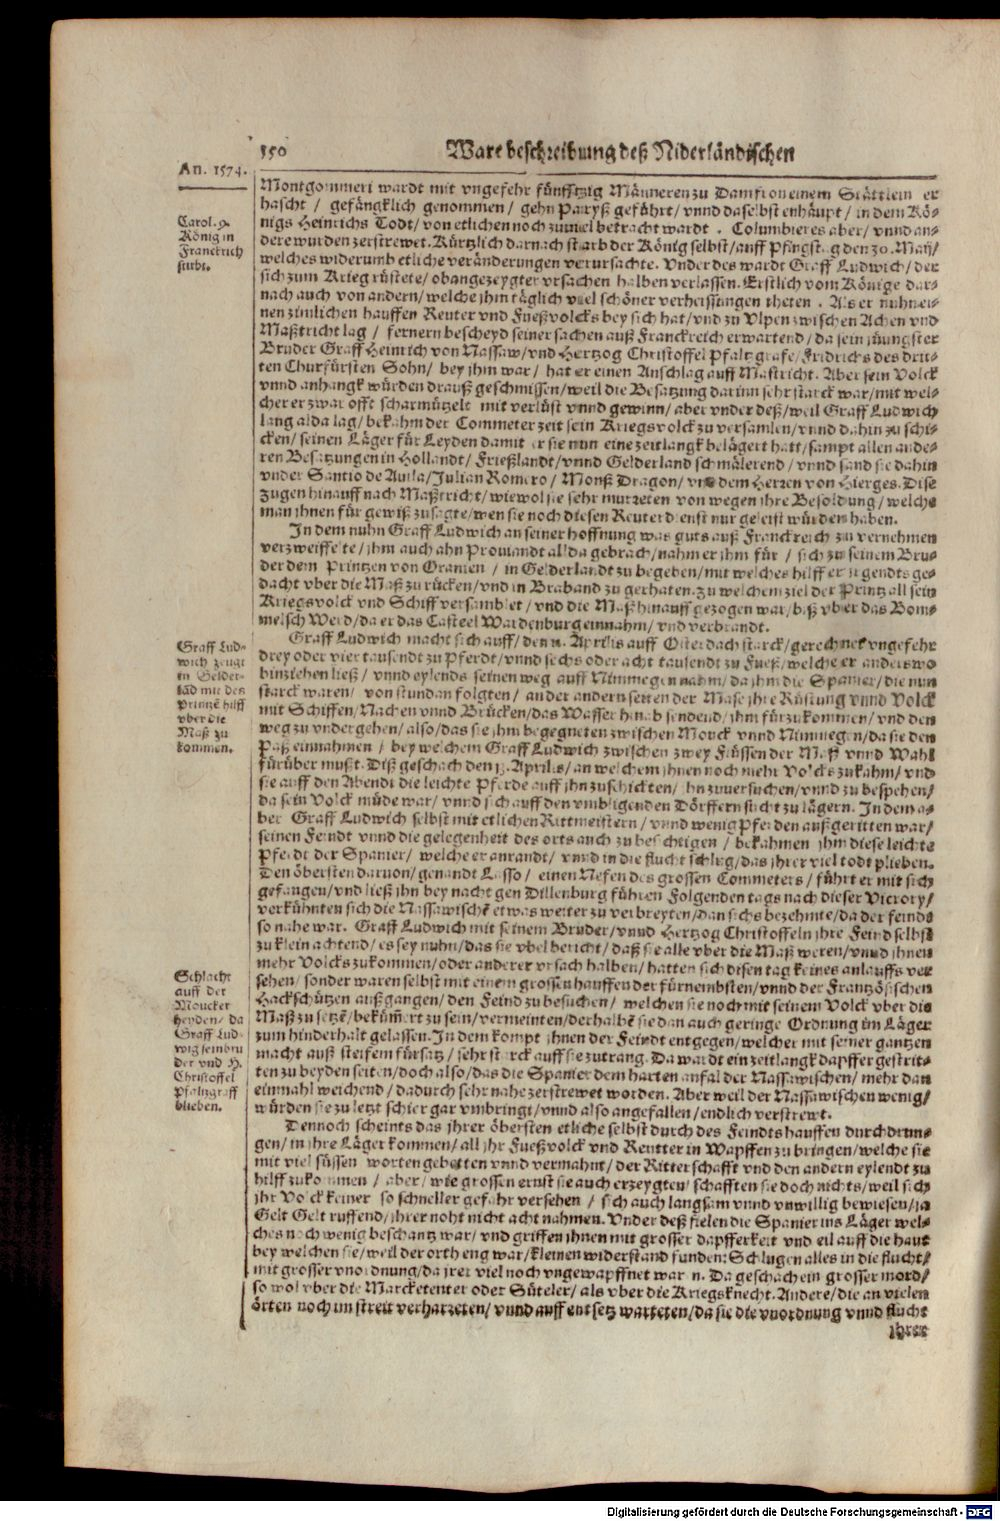 150 Ware beschreibung deß Niderländischen
An. 1574.
Montgommeri wardt mit vngefehr fünfftzig Männeren zu Damfron einem Stättlein er
hascht / gefängklich genommen / gehn Paryß geführt / vnnd daselbst enhäupt / in dem Kö-
nigs Heinrichs Todt / von etlichen noch zuuiel betracht wardt . Columbieres aber / vnnd an-
dere wurden zerstrewet. Kürtzlich darnach starb der König selbst / auff Pfingstag den 30. Maÿ /
welches widerumb etliche veränderungen verursachte. Vnder des wardt Graff Ludwich / der
sich zum Krieg rüstete / obangezeygter vrsachen halben verlassen. Erstlich vom Könige dar-
nach auch von andern / welche jhm täglich viel schöner verheissungen theten . Als er nuhn ei-
nen zimlichen hauffen Reuter vnd Fueßvolcks bey sich hat / vnd zu Vlpen zwischen Achen vnd
Maßtricht lag / fernern bescheyd seiner sachen auß Franckreich erwartend / da sein jüungster
Bruder Graff Heinrich von Nassaw / vnd Hertzog Christoffel Pfaltzgrafe / Fridrichs des drit-
ten Churfürsten Sohn / bey jhm war / hat er einen Anschlag auff Mastricht. Aber sein Volck
vnnd anhangk würden drauß geschmissen / weil die Besatzung darinn sehr starck war / mit wel-
cher er zwar offt scharmützelt mit verlüst vnnd gewinn / aber vnder deß / weil Graff Ludwich
lang alda lag / bekahm der Commeter zeit sein Kriegsvolck zu versamlen / vnnd dahin zu schi-
cken / seinen Läger für Leyden damit er sie nun eine zeitlangk belägert hatt / sampt allen ande-
ren Besatzungen in Hollandt / Frießlandt / vnnd Gelderland schmälerend / vnnd sand sie dahin
vnder Santio de Auila / Julian Romero / Monß Dragon / vnd dem Herren von Hierges. Dise
zugen hinauff nach Maßtricht / wiewol sie sehr mutreten von wegen jhre Besoldung / welche
man jhnen für gewiß zusagte / wen sie noch diesen Reuterdienst nur geleist würden haben.
In dem nuhn Graff Ludwich an seiner hoffnung was guts auß Franckreich zu vernehmen
verzweiffelte / jhm auch ahn Prouiandt allda gebrach / nahm er jhm für / sich zu seinem Bru-
der dem Printzen von Oranien / in Gelderlandt zu begeben / mit welches hilff er irgendts ge-
dacht vber die Maß zu rücken / vnd in Braband zu gerhaten. Zu welchem ziel der Printz all sein
Kriegsvolck vnd Schiff versamblet / vnd die Maß hinauff gezogen war / biß vber das Bom-
melsch Werd / da er das Casteel Wardenburg einnahm / vnd verbrandt.
Graff Lud-
wich zeugt
in Gelder-
läd mit des
Printzē hilff
vber die
Maß zu
kommen.
Graff Ludwich macht sich auff / den 11. Aprilis auff Osterdach starck / gerechnet vngefehr
drey oder vier tausendt zu Pferdt / vnnd sechs oder acht tausendt zu Fueß / welche er anderswo
hinziehen ließ / vnnd eylends seinen weg auff Nimmegen nahm / da jhm die Spanier / die nun
starck waren / von stundan folgten / an der andern seiten der Mase jhre Rüstung vnnd Volck
mit Schiffen / Nachen vnnd Brücken / das Wasser hinab sendend / jhm fürzukommen / vnd den
weg zu vndergehen / also / das sie jhm begegneten zwischen Mouck vnnd Nimmegen / da sie den
Paß einnahmen / bey welchem Graff Ludwich zwischen zwey Flüssen der Maß vnnd Wahl
fürüber mußt. Diß geschach den 13. Aprilis / an welchem jhnen noch mehr Volcks zukahm / vnd
sie auff den Abendt die leichte Pferde auff jhn zuschickten / jhn zuuersuchen / vnnd zu bespehen /
da sein Volck müde war / vnnd sich auff den vmbligenden Dörffern sucht zu lägern. In dem a-
ber Graff Ludwich selbst mit etlichen Rittmeistern / vnnd wenig Pferden außgeritten war /
seinen Feindt vnnd die gelegenheit des orts auch zu besichtigen / bekahmen jhm diese leichte
Pferdt der Spanier / welche er anrandt / vnnd in die flucht schlug / das jhrer viel todt plieben.
Den öbersten daruon / genandt Lasso / einen Nefen des grossen Commeters / führt er mit sich
gefangen / vnd ließ jhn bey nacht gen Dillenburg führen Folgenden tags nach dieser Victory /
verkühnten sich die Nassawischē etwas weiter zu verbreyten / dan sichs bezehmte / da der feinde
so nahe war. Graff Ludwich mit seinem Bruder / vnnd Hertzog Christoffeln jhre Feind selbst
zu klein achtend / es sey nuhn / das sie vbel bericht / daß sie alle vber die Maß weren / vnnd jhnen
mehr Volcks zukommen / oder anderer vrsach halben / hatten sich disen tag keines anlauffs ver
sehen / sonder waren selbst mit einem grossen hauffen der fürnembsten / vnnd der Frantzösischen
Schlacht
auff der
Moucker
heyden / da
Graff Lud-
wig sein bru
der vnd H.
Christoffel
Pfaltzgraff
blieben.
Hackschützen außgangen / den Feind zu besuchen / welchen sie noch mit seinem Volck vber die
Maß zu setzē / bekūmert zu sein / vermeinten / derhalbē sie dan auch geringe Ordnung im Läger
zum hinderhalt gelassen. In dem kompt jhnen der Feindt entgegen / welcher mit seiner gantzen
macht auß steifem fürsatz / sehr starck auff sie zutrang. Da wardt ein zeitlangk dapffer gestrit-
ten zu beyden seiten / doch also / das die Spanier dem harten anfal der Nassawischen / mehr dan
einmahl weichend / dadurch sehr nahe zerstrewet worden. Aber weil der Nassawischen wenig /
würden sie zu letzt schier gar vmbringt / vnnd also angefallen / endlich verstrewt.
Dennoch scheints das jhrer öbersten etliche selbst durch des Feindts hauffen durchdrun-
gen / in jhre Läger kommen / all jhr Fueßvolck vnd Reutter in Wapffen zu bringen / welche sie
mit viel süssen worten gebetten vnnd vermahnt / der Ritterschafft vnd den andern eylendt zu
hilff zukommen / aber / wie grossen ernst sie auch erzeygten / schafften sie doch nichts / weil sich
jhr Volck keiner so schneller gefahr versehen / sich auch langsam vnnd vnwillig bewiesen / ja
Gelt Gelt ruffend / jhrer noht nicht acht nahmen. Vnder deß fielen die Spanier ins Läger wel-
ches noch wenig beschantz war / vnd griffen jhnen mit grosser dapfferkeit vnd eil auff die haut
bey welchen sie / weil der orth eng war / kleinen widerstand funden: Schlugen alles in die flucht /
mit grosser vnordnung / da jrer viel noch vngewapffnet waren. Da geschach ein grosser mord /
so wol vber die Marcketenter oder Süteler / als vber die Kriegsknecht. Andere / die an vielen
örten noch im streit verharreten / vnnd auff entsetz warteten / da sie die vnordnung vnnd flucht
jhrer
Carol. 9.
König in
Franckrich
stirbt.
Digitalisierung gefördert durch die Deutsche Forschungsgemeinschaft - DFG